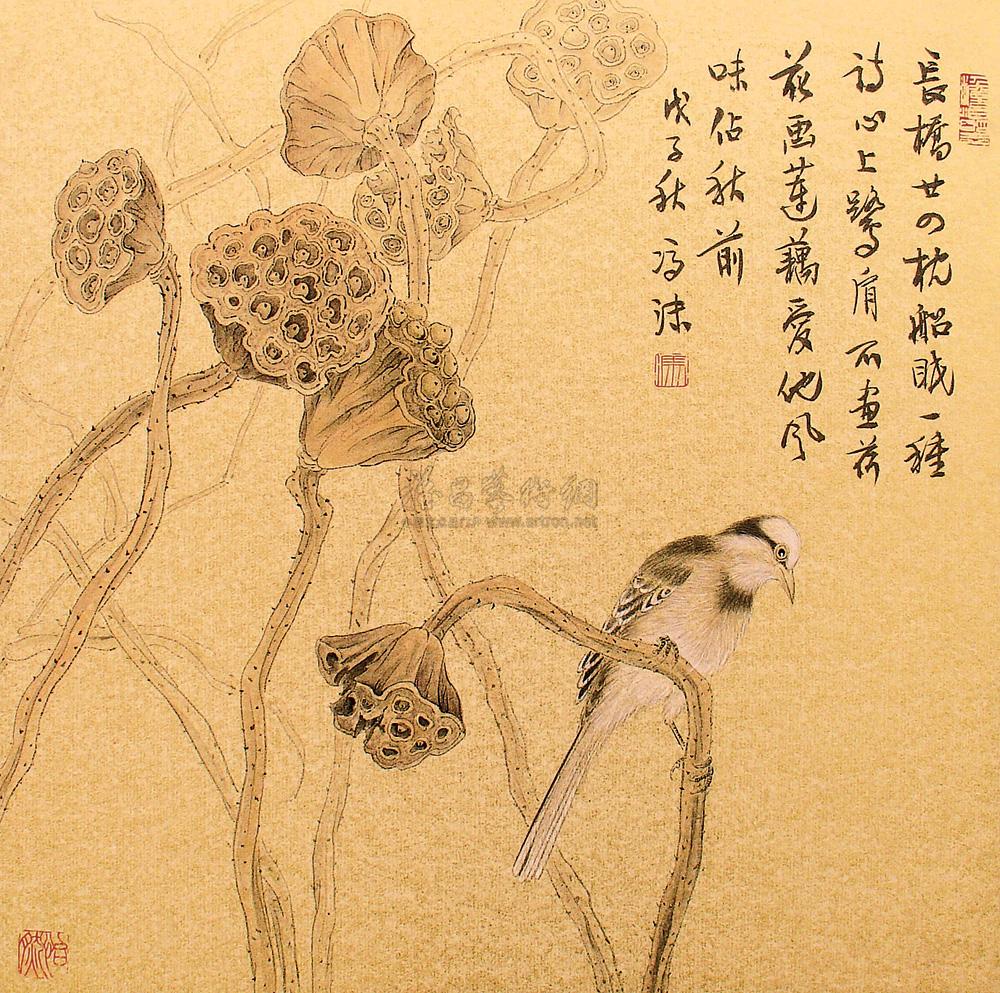 長橋廿四枕船眠一種
詩心上鷺肩不畫荷
花画蓮藕愛他风
味佔秋前
戊子秋 冯沫
www.artron.net